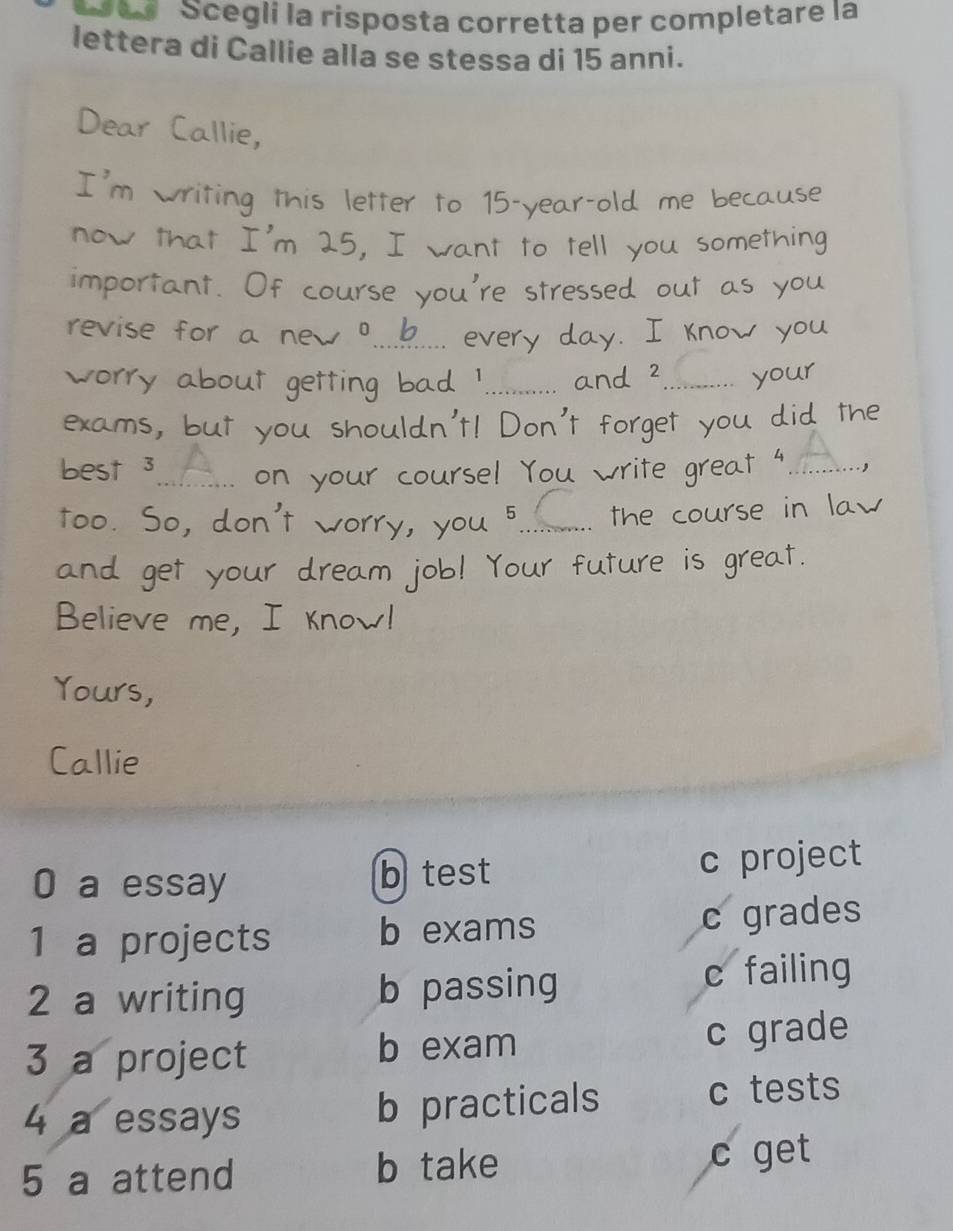 Scegli la risposta corretta per completare la
lettera di Callie alla se stessa di 15 anni.
Dear Callie,
I'm writing this letter to 15-year-old me because
now that I'm 25, I want to tell you something
important. Of course you're stressed out as you
revise for a new 0 b every day. I know you
worry about getting bad 1 C and 2 C your
exams, but you shouldn't! Don't forget you did the
best 3 A on your course! You write great 4 A,
too. So, don't worry, you 5 C the course in law
and get your dream job! Your future is great.
Believe me, I know!
Yours,
Callie
0 a essay b test c project
1 a projects b exams c grades
2 a writing b passing c failing
3 a project b exam c grade
4 a essays b practicals c tests
5 a attend b take c get